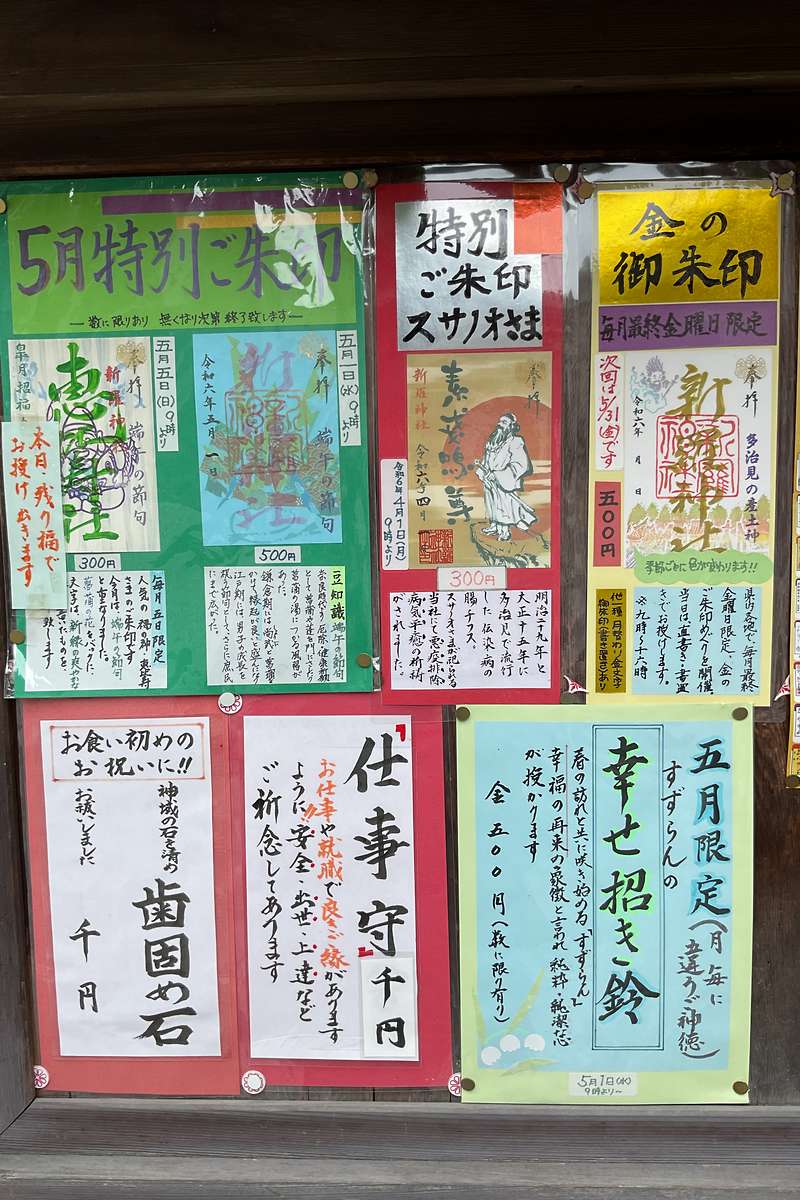 5月特別ご朱印
―数に限りあり 無くなり次第終了致します―
五月五日(日)9時より
奉拝
端午の節句
新羅神社
恵
皐月招福
本日、残り福で
お授けできます
300円
毎月五日限定
人気の福の神、恵比寿
さまのご朱印です
今月は、端午の節句
と重なりました。
菖蒲の花をバックに
文字は、新緑の爽やかな
致します
五月一日(水)9時より
奉拝
端午の節句
新
令和六年五月一日
500円
豆知識 端午の節句
特別
ご朱印
スサノオさま
奉拝
素戔嗚尊
新羅神社
令和六年四月
令和6年4月1日(月)
9時より
300円
明治二十九年と
大正十五年に
多治見で流行
した伝染病の
腸チフス。
スサノオさまが祀られる
当社にて悪疫排除
病気平癒の祈祷
がされました。
金の
御朱印
毎月最終金曜日限定
次回は5/31(金)です
五〇〇円
奉拝
多治見の産土神
新羅神社
令和六年 月 日
季節ごとに色が変わります!!
県内各地で、毎月最終
金曜日限定、金の
ご朱印めぐりを開催
当日は、直書き・書置
きでお授けします。
※九時〜十六時
他一種 月替わり金文字
御朱印(書き置き)あり
お食い初めの
お祝いに!!
神域の石を清め
お祓いしました
歯固め石
千円
仕事守
千円
お仕事や就職で良きご縁があります
ように!!安全・出世・上達など
ご祈念してあります
五月限定(月毎に
違うご神徳)
すずらんの
幸せ招き鈴
春の訪れと共に咲き始める「すずらん」
幸福の再来の象徴と言われ 純粋・純潔な心
が授かります
金 五〇〇円(数に限り有り)
5月1日(水)
9時より〜